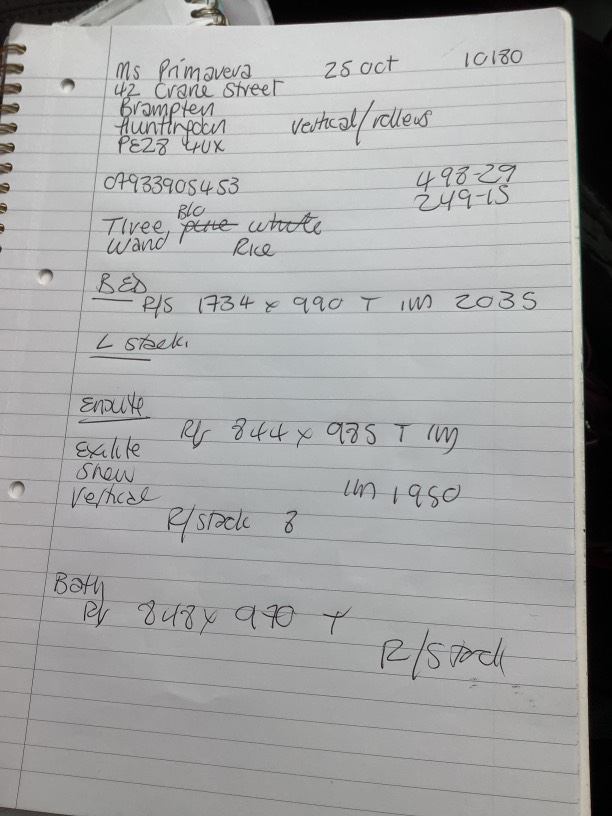 Ms Primavera 25 Oct 10180
42 Crane Street
Brampten
Huntingdon vertical/rollers
PE28 4UX
07933905453 498-29
249-15
Tiree, B/O pure white
Wand Rice
BED
R/S 1734 x 990 T 1M 2035
L stack.
Ensuite
R/S 844 x 985 T 1M
Exilite
Snow 1M 1950
Vertical
R/stack 8
Bath
R/S 848 x 970 T
R/Stack